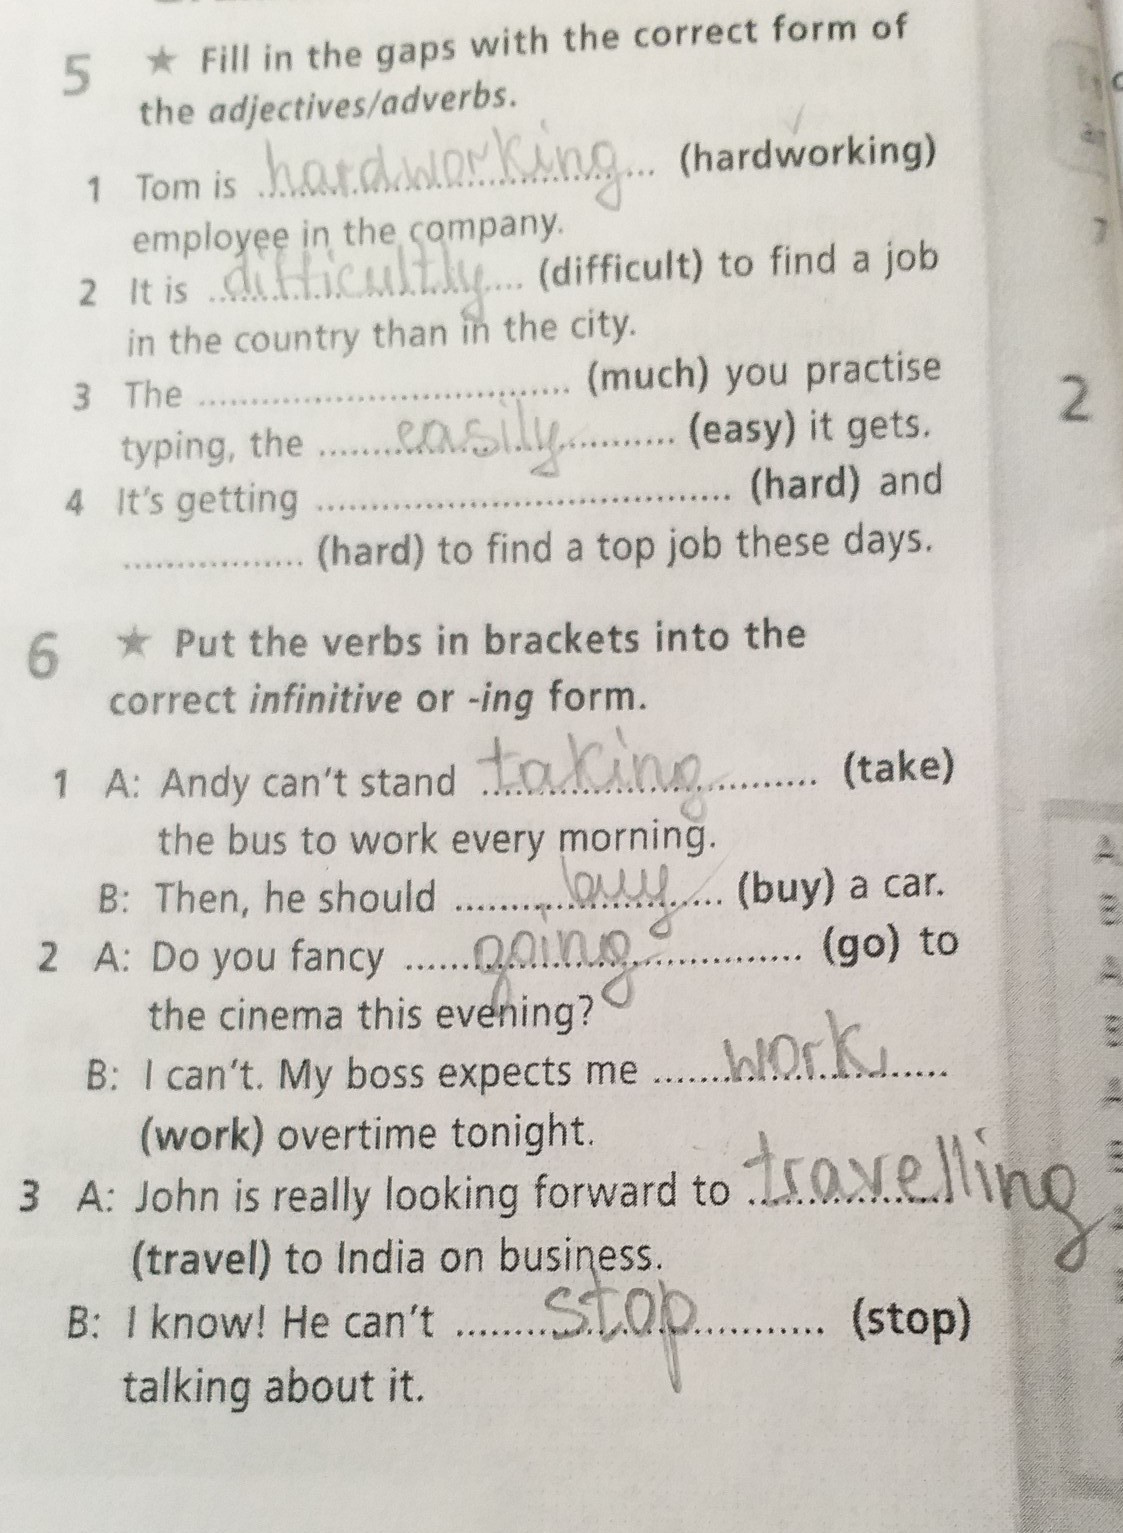 5 ★ Fill in the gaps with the correct form of
the adjectives/adverbs.
1 Tom is hardworking (hardworking)
employee in the company.
2 It is difficultly (difficult) to find a job
in the country than in the city.
3 The .................................... (much) you practise
typing, the easily (easy) it gets.
4 It's getting ........................................ (hard) and
................. (hard) to find a top job these days.
6 ★ Put the verbs in brackets into the
correct infinitive or -ing form.
1 A: Andy can't stand taking (take)
the bus to work every morning.
B: Then, he should buy (buy) a car.
2 A: Do you fancy going (go) to
the cinema this evening?
B: I can't. My boss expects me work
(work) overtime tonight.
3 A: John is really looking forward to travelling
(travel) to India on business.
B: I know! He can't stop (stop)
talking about it.
2